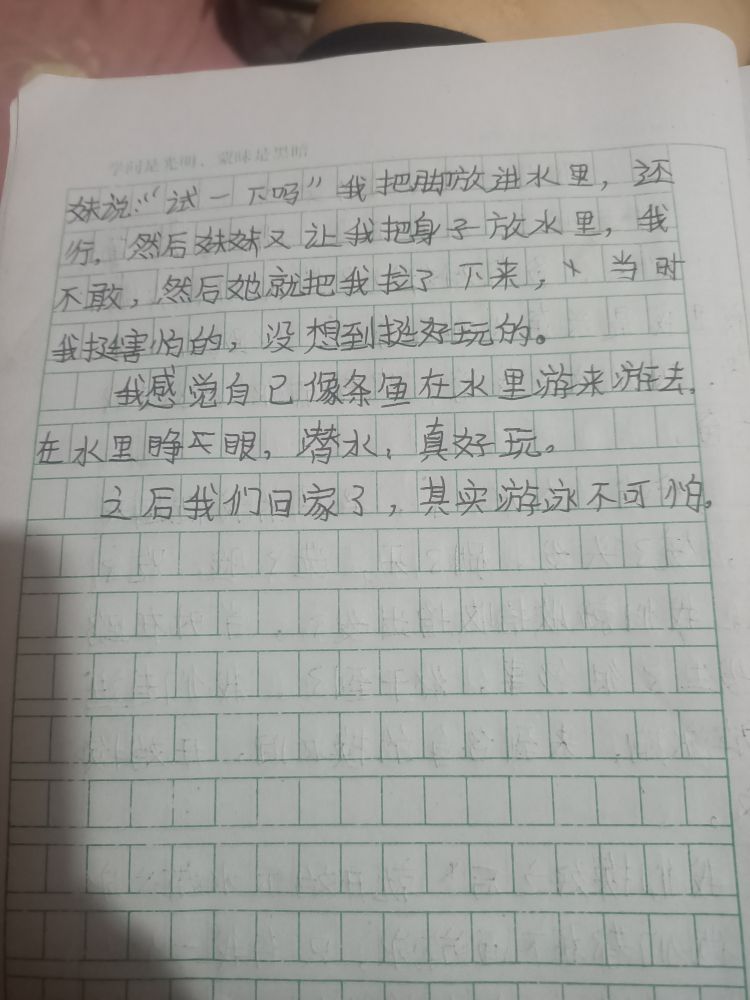 学问是光明，蒙昧是黑暗
妹说：“试一下吗”我把脚放进水里，还
行，然后妹妹又让我把身子放水里，我
不敢，然后她就把我拉了下来，当时
我挺害怕的，没想到挺好玩的。
我感觉自己像条鱼在水里游来游去，
在水里睁开眼，潜水，真好玩。
之后我们回家了，其实游泳不可怕。